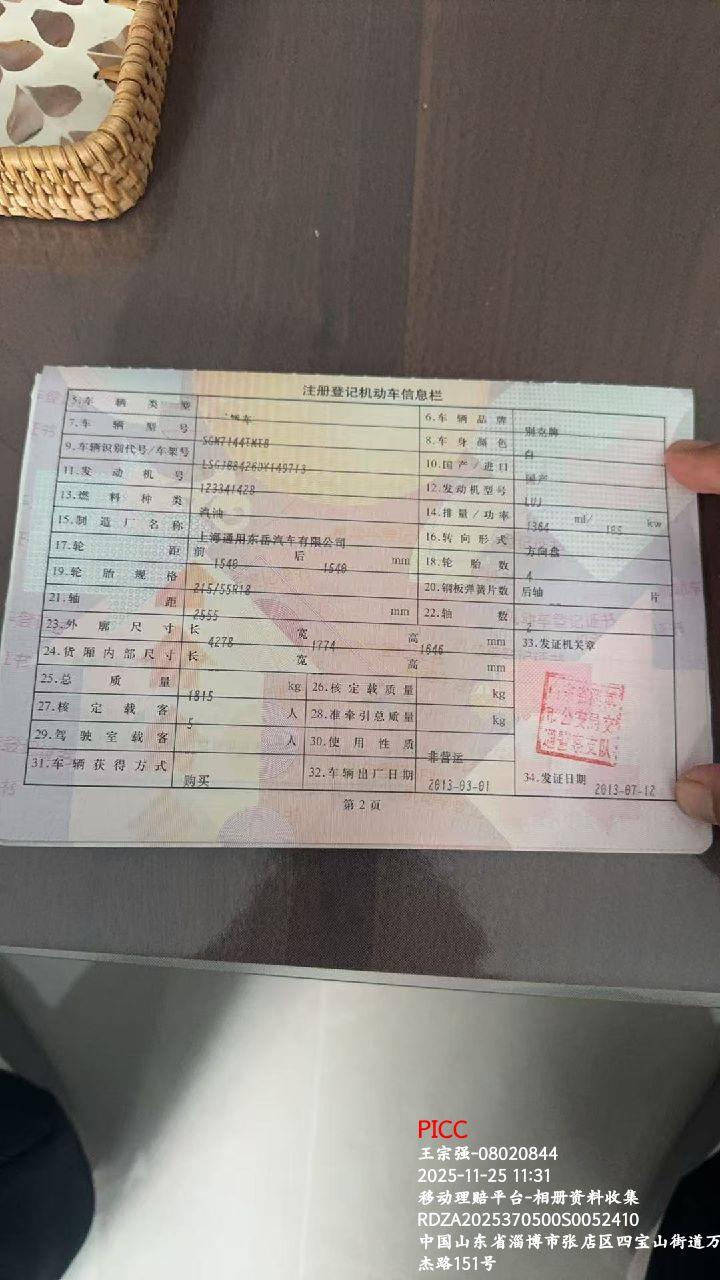 注册登记机动车信息栏
5.车辆类型 6.车辆品牌 别克牌
7.车辆型号 SGM7144TMTB 8.车身颜色 白
9.车辆识别代号/车架号 10.国产/进口 国产
11.发动机号 123341428 12.发动机型号 LUJ
13.燃料种类 汽油 14.排量/功率 1364 ml/ kw
15.制造厂名称 上海通用东岳汽车有限公司 16.转向形式 方向盘
17.轮距 前 1540 后 1540 mm 18.轮胎数 4
19.轮胎规格 215/55R18 20.钢板弹簧片数 后轴 片
21.轴距 2555 mm 22.轴数 2
23.外廓尺寸 长 4278 宽 1774 高 1646 mm 33.发证机关章
24.货厢内部尺寸 长 宽 高 mm
25.总质量 1815 kg 26.核定载质量 kg
27.核定载客 5 人 28.准牵引总质量 kg
29.驾驶室载客 人 30.使用性质 非营运
31.车辆获得方式 购买 32.车辆出厂日期 2013-03-01 34.发证日期 2013-07-12
第2页
PICC
王宗强-08020844
2025-11-25 11:31
移动理赔平台-相册资料收集
RDZA2025370500S0052410
中国山东省淄博市张店区四宝山街道万
杰路151号